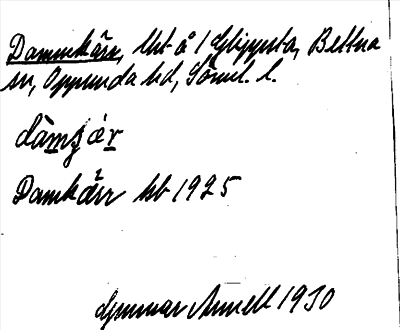 Dammkärr, lht å 1 Glippsta, Bettna
sn, Oppunda hd, Söml. l.
dàmçæ̀r
Damkärr kb 1925
Gunnar Arnell 1930